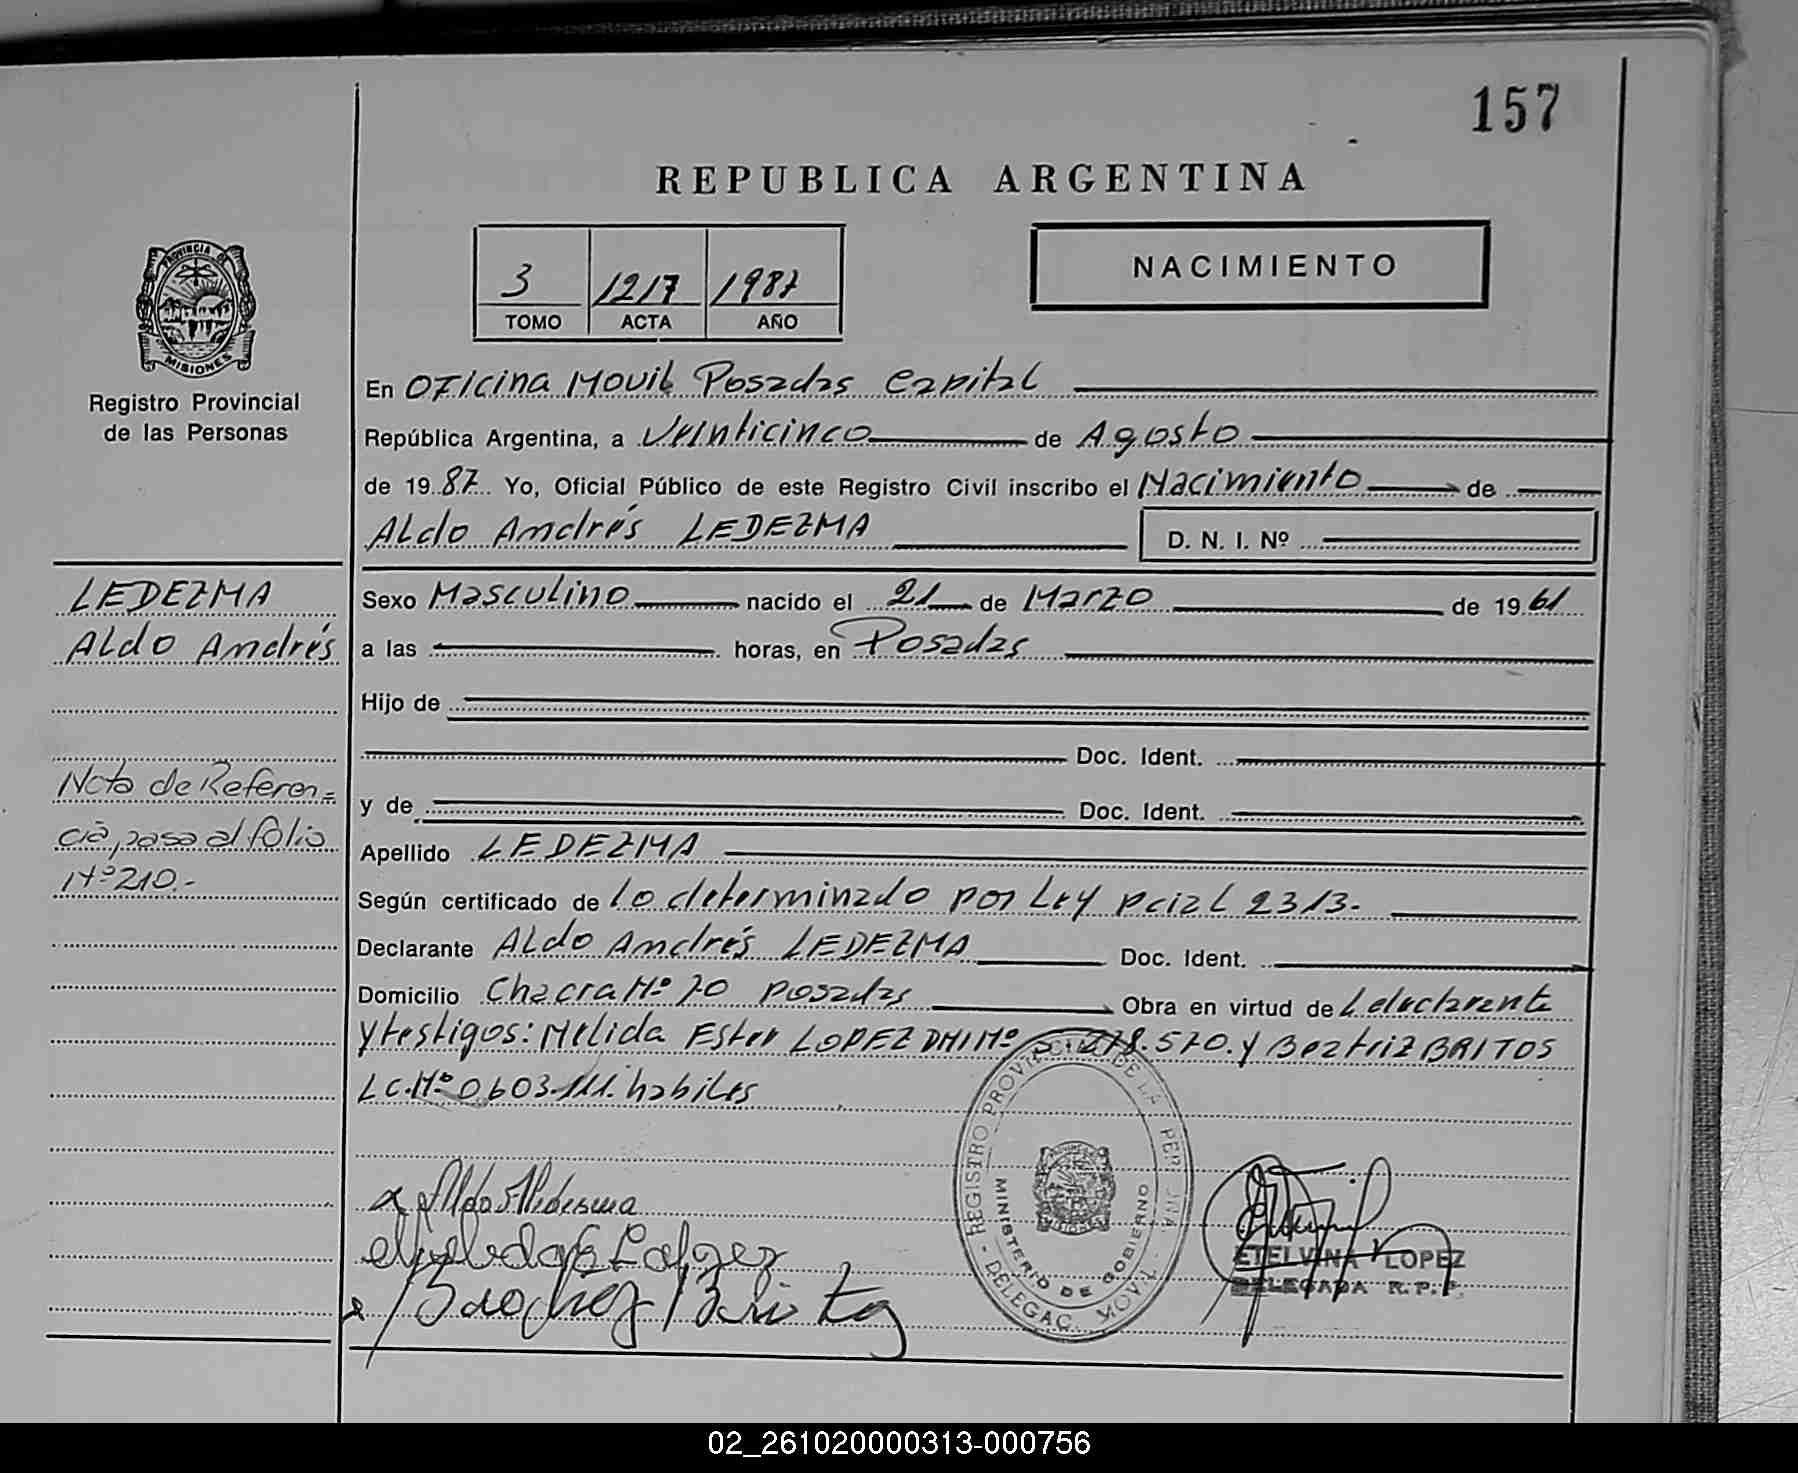 157
REPUBLICA ARGENTINA
3 1217 1987
TOMO ACTA AÑO
NACIMIENTO
PROVINCIA DE MISIONES
Registro Provincial
de las Personas
En Oficina Movil Posadas Capital
República Argentina, a Veinticinco de Agosto
de 1987 Yo, Oficial Público de este Registro Civil inscribo el Nacimiento de
Aldo Andrés LEDEZMA D. N. I. Nº
LEDEZMA
Aldo Andrés
Sexo Masculino nacido el 21 de Marzo de 1961
a las horas, en Posadas
Hijo de
Doc. Ident.
y de Doc. Ident.
Nota de Referen=
cia, pasa al folio
Nº 210.-
Apellido LEDEZMA
Según certificado de lo determinado por Ley pcial 2313.
Declarante Aldo Andrés LEDEZMA Doc. Ident.
Domicilio Chacra Nº 70 Posadas Obra en virtud de declarante
y testigos: Nelida Ester LOPEZ DNI Nº 278.570. y Beatriz BRITOS
LC. Nº 0603.111. habiles
REGISTRO PROVINCIAL DE LAS PERSONAS
MINISTERIO DE GOBIERNO
DELEGAC. MOVIL
ETELVINA LOPEZ
DELEGADA R.P.P.
02_261020000313-000756